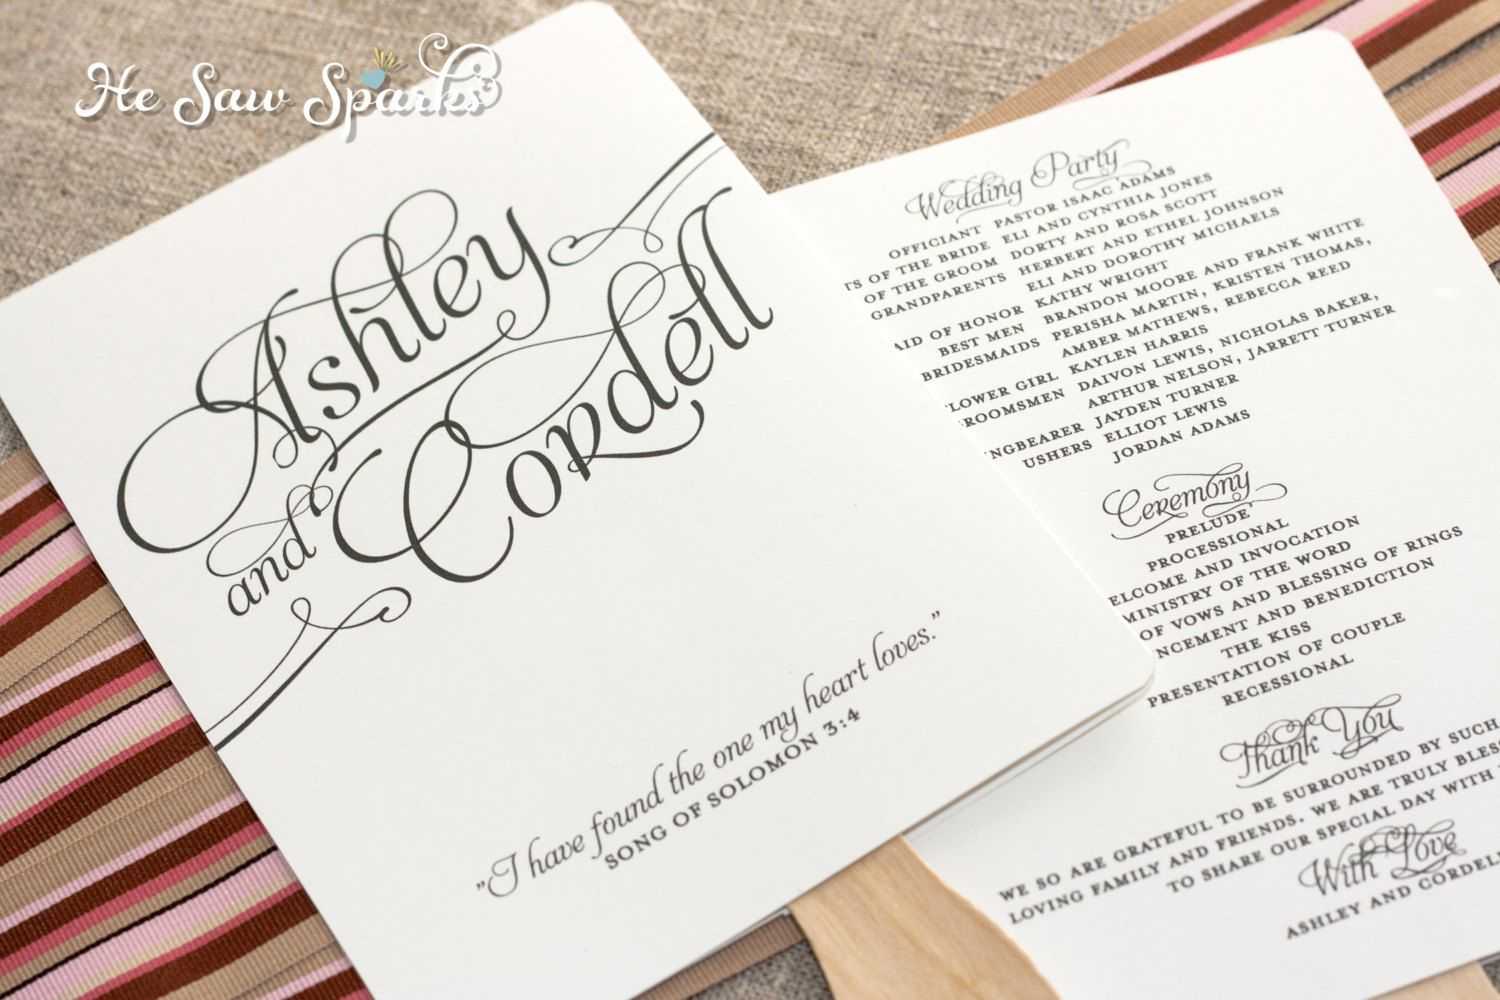 He Saw Sparks
Ashley
and Cordell
"I have found the one my heart loves."
SONG OF SOLOMON 3:4
Wedding Party
OFFICIANT PASTOR ISAAC ADAMS
OF THE BRIDE ELI AND CYNTHIA JONES
OF THE GROOM DORTY AND ROSA SCOTT
GRANDPARENTS HERBERT AND ETHEL JOHNSON
ELI AND DOROTHY MICHAELS
OF HONOR KATHY WRIGHT
BEST MEN BRANDON MOORE AND FRANK WHITE
BRIDESMAIDS PERISHA MARTIN, KRISTEN THOMAS,
AMBER MATHEWS, REBECCA REED
LOWER GIRL KAYLEN HARRIS
ROOMSMEN DAIVON LEWIS, NICHOLAS BAKER,
ARTHUR NELSON, JARRETT TURNER
NGBEARER JAYDEN TURNER
USHERS ELLIOT LEWIS
JORDAN ADAMS
Ceremony
PRELUDE
PROCESSIONAL
ELCOME AND INVOCATION
MINISTRY OF THE WORD
OF VOWS AND BLESSING OF RINGS
NCEMENT AND BENEDICTION
THE KISS
PRESENTATION OF COUPLE
RECESSIONAL
Thank You
WE SO ARE GRATEFUL TO BE SURROUNDED BY SUCH
LOVING FAMILY AND FRIENDS. WE ARE TRULY BLES
TO SHARE OUR SPECIAL DAY WITH
With Love
ASHLEY AND CORDELL